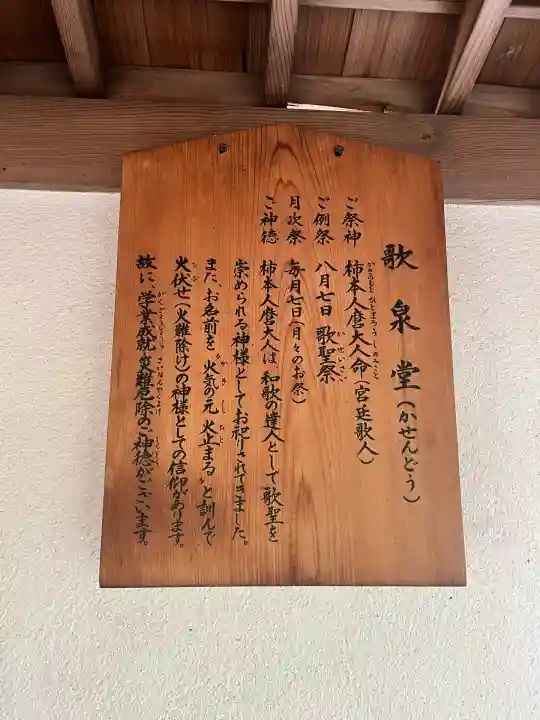 歌泉堂(かせんどう)
ご祭神 柿本人麿大人命(宮廷歌人)
ご例祭 八月七日 歌聖祭
月次祭 毎月七日(月々のお祭)
ご神徳 柿本人麿大人は、和歌の達人として歌聖を
崇められる神様としてお祀りされてきました。
また、お名前を〝火気の元 火止まる〟と訓んで
火伏せ(火難除け)の神様としての信仰があります。
故に、学業成就、災難危除のご神徳がございます。